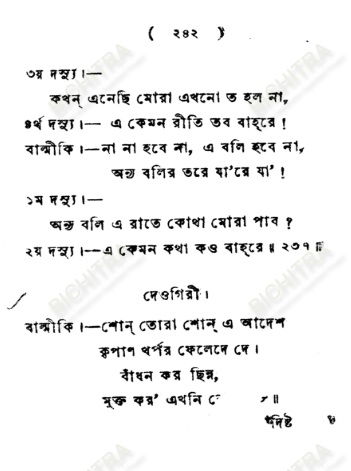 ( ২৪২ )
৩য় দস্যু।—
কখন্ এনেছি মোরা এখনো ত হল না,
৪র্থ দস্যু।— এ কেমন রীতি তব বাহ্‌রে !
বাল্মীকি।—না না হবে না, এ বলি হবে না,
অন্য বলির তরে যা'রে যা' !
১ম দস্যু।—
অন্য বলি এ রাতে কোথা মোরা পাব ?
২য় দস্যু।—এ কেমন কথা কও বাহ্‌রে॥ ২৩৭॥
দেওগিরী।
বাল্মীকি।—শোন্ তোরা শোন্ এ আদেশ
কৃপাণ খর্পর ফেলেদে দে।
বাঁধন কর ছিন্ন,
মুক্ত কর' এখনি ॥
BICHITRA
BICHITRA
BICHITRA
BICHITRA